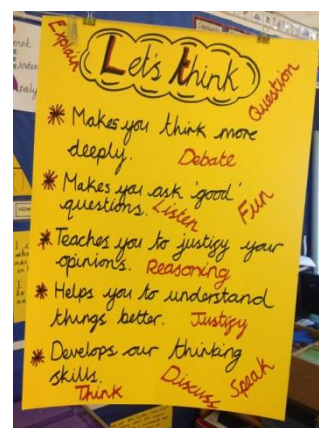 Explain
Let's think
Question
* Makes you think more
deeply. Debate
* Makes you ask 'good'
questions. Listen Fun
* Teaches you to justify your
opinions. Reasoning
* Helps you to understand
things better. Justify
* Develops our thinking
skills.
Think Discuss Speak